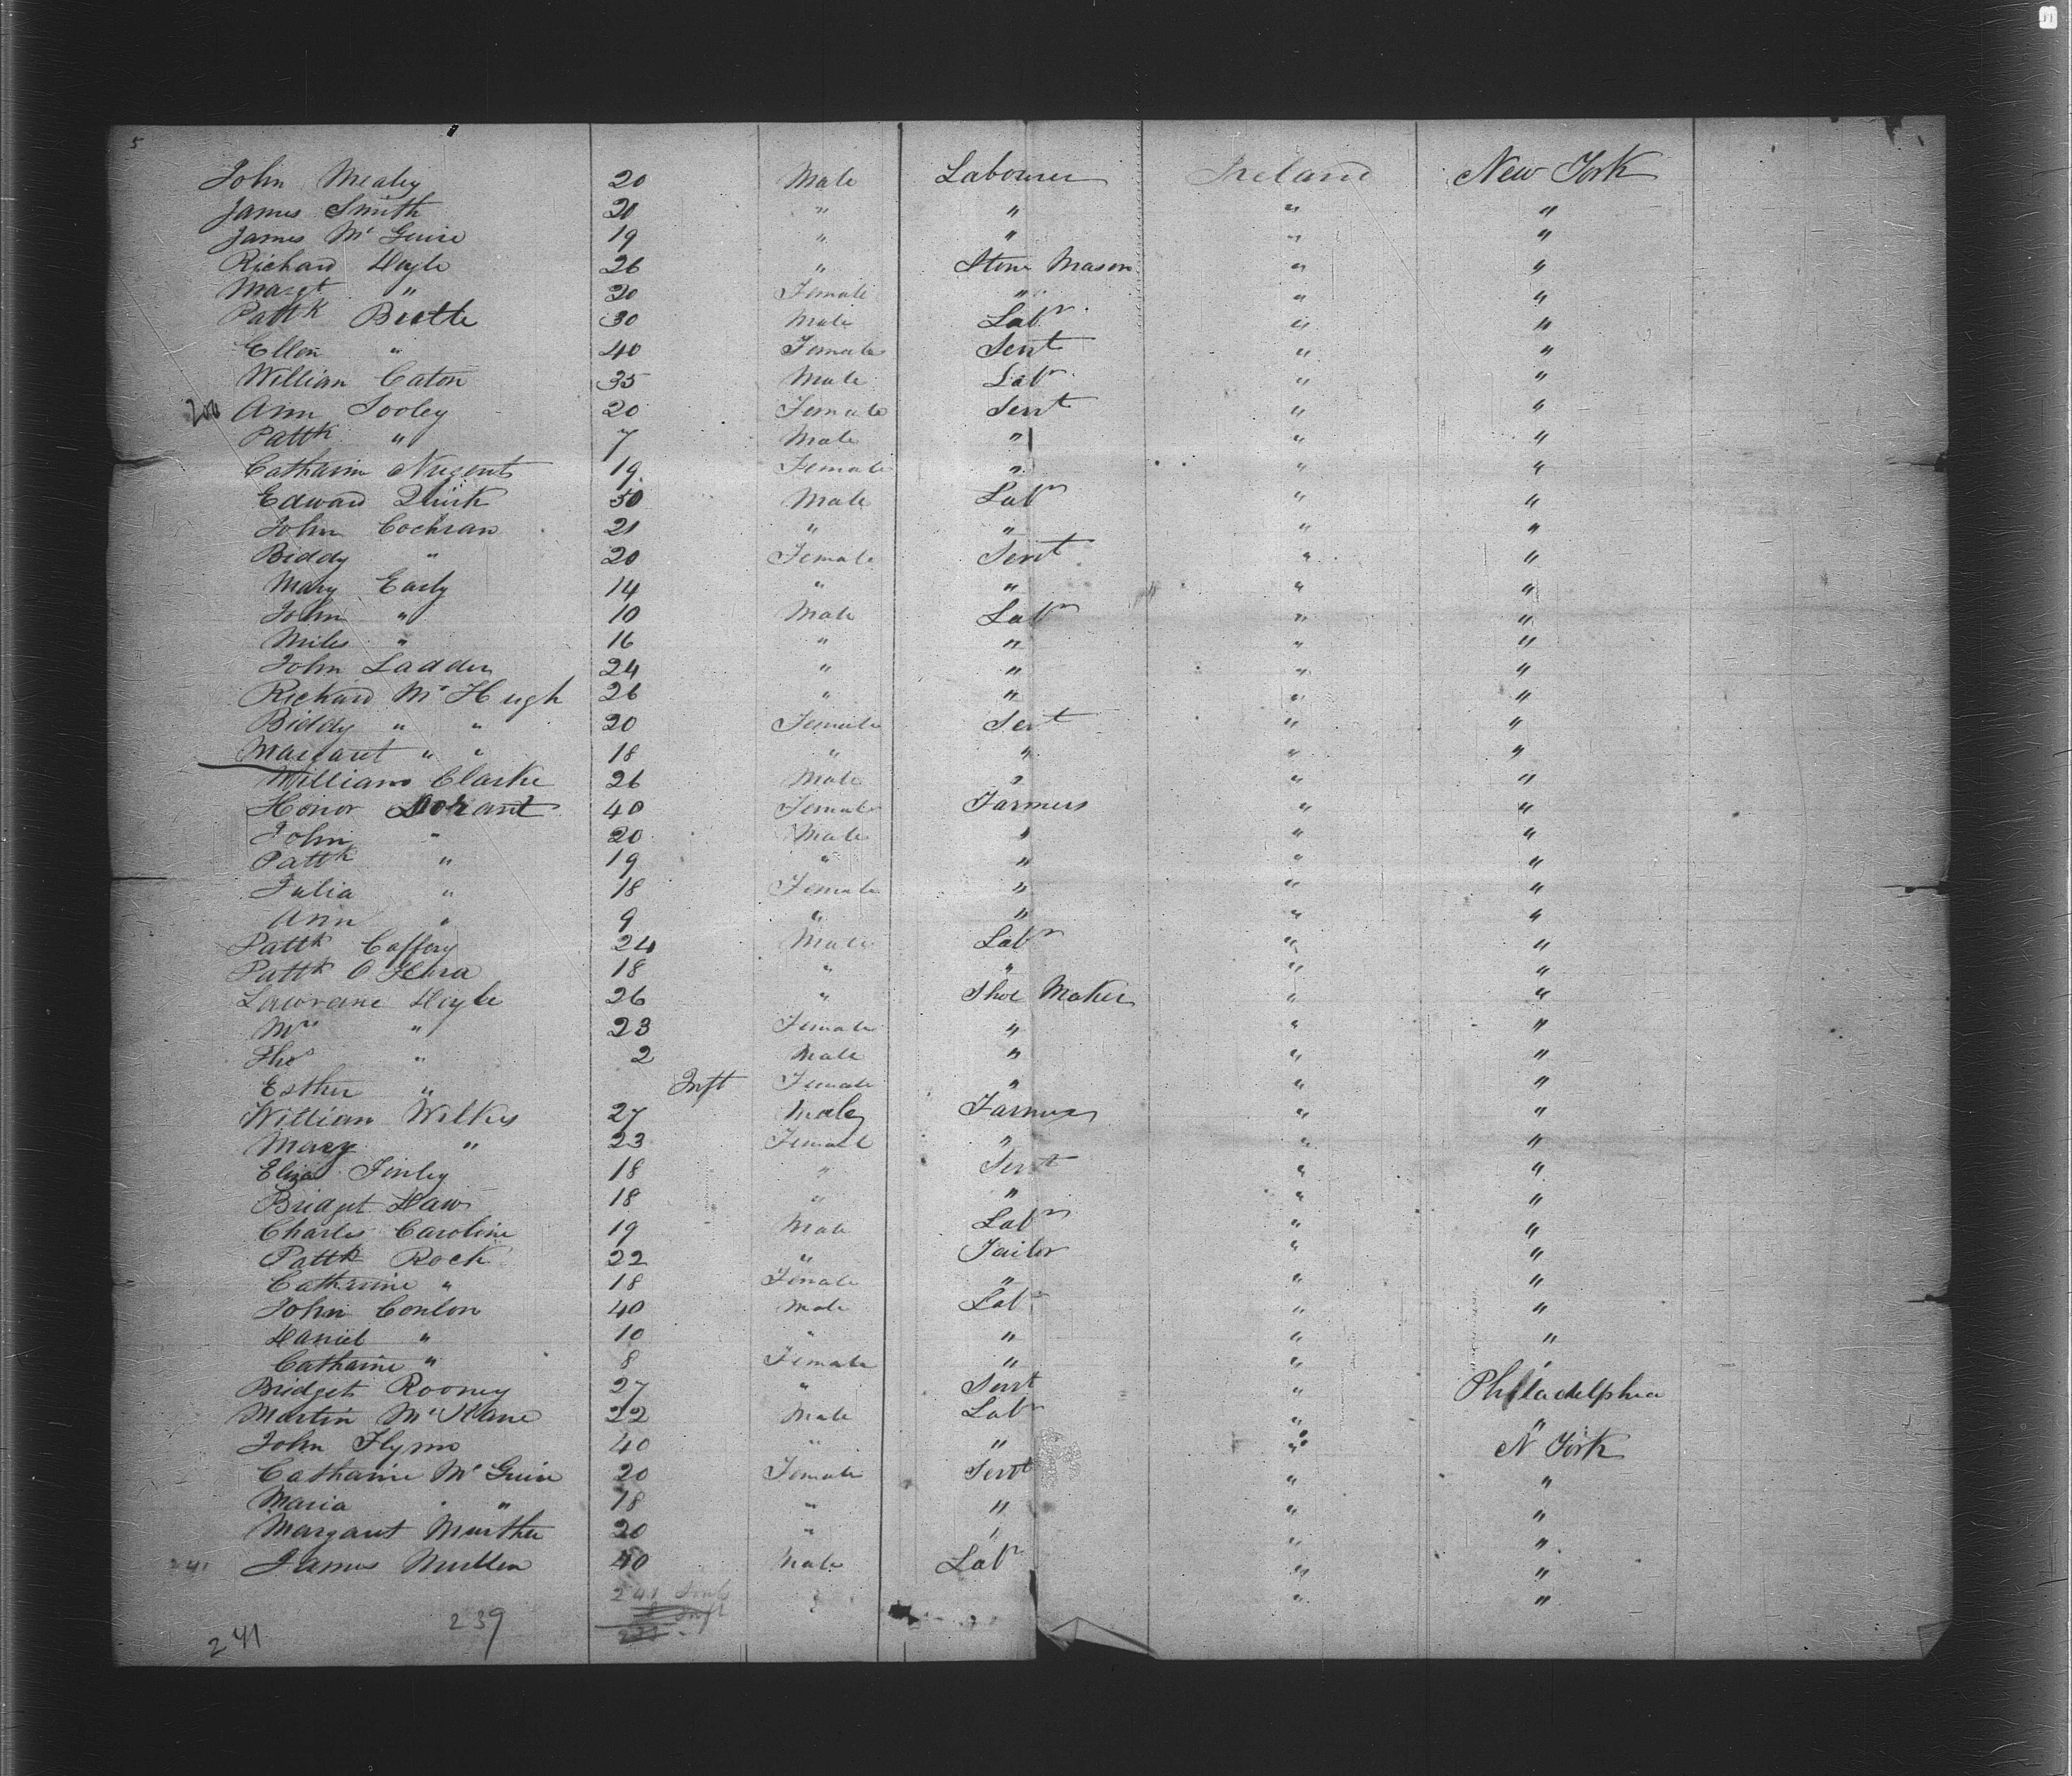 5
John Mealey 20 Male Labourer Ireland New York
James Smith 20 " " " "
James Mc Guire 19 " " " "
Richard Doyle 26 " Stone Mason " "
Margt " 20 Female " " "
Pattk Beatte 30 Male Labr " "
Ellen " 40 Female Servt " "
William Caton 35 Male Labr " "
200 Ann Tooley 20 Female Servt " "
Pattk " 7 Male " " "
Catharin Nugent 19 Female " " "
Edward Quirk 50 Male Labr " "
John Cochran 21 " " " "
Biddy " 20 Female Servt " "
Mary Early 14 " " " "
John " 10 Male Labr " "
Miles " 16 " " " "
John Ladden 24 " " " "
Richard Mc Hugh 26 " " " "
Biddy " " 20 Female Servt " "
Margaret " " 18 " " " "
William Clarke 26 Male " " "
Honor Dorant 40 Female Farmers " "
John " 20 Male " " "
Pattk " 19 " " " "
Julia " 18 Female " " "
Ann " 9 " " " "
Pattk Caffery 24 Male Labr " "
Pattk O Hara 18 " " " "
Lawrance Doyle 26 " Shoe Maker " "
Mrs " 23 Female " " "
Thos " 2 Male " " "
Esther " Inft Female " " "
William Wilkes 27 Male Farmer " "
Mary " 23 Female " " "
Eliza Finley 18 " Servt " "
Bridget Daw 18 " " " "
Charles Caroline 19 Male Labr " "
Pattk Rock 22 " Tailor " "
Catharine " 18 Female " " "
John Conlon 40 Male Labr " "
Daniel " 10 " " " "
Catharine " 8 Female " " "
Bridget Rooney 27 " Servt " Philadelphia
Martin Mc Kane 22 Male Labr " "
John Flynn 40 " " " N York
Catharine Mc Guire 20 Female Servt " "
Maria " " 18 " " " "
Margaret Murther 20 " " " "
241 James Mullen 40 Male Labr " "
241 " "
241 239